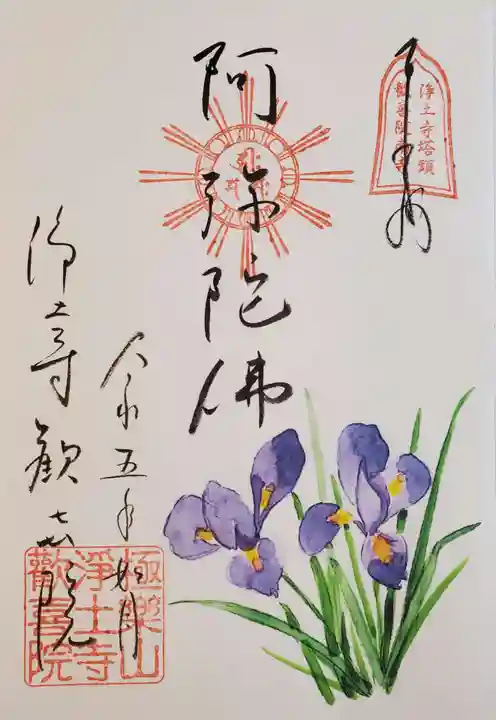 浄土寺塔頭
歓喜院
阿弥陀佛
令和五年
浄土寺歓喜院
極樂山
淨土寺
歡喜院